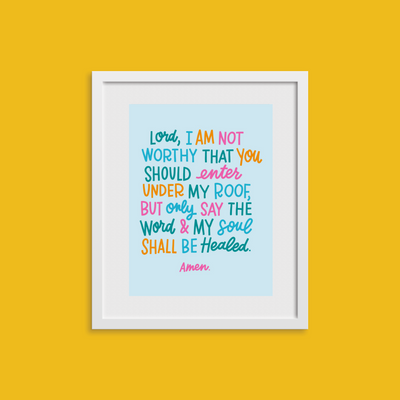 Lord, I AM NOT
WORTHY THAT YOU
SHOULD enter
UNDER MY ROOF,
BUT only SAY THE
Word & MY Soul
SHALL BE Healed.
Amen.